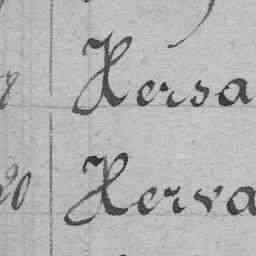 Hersa
20 Herva